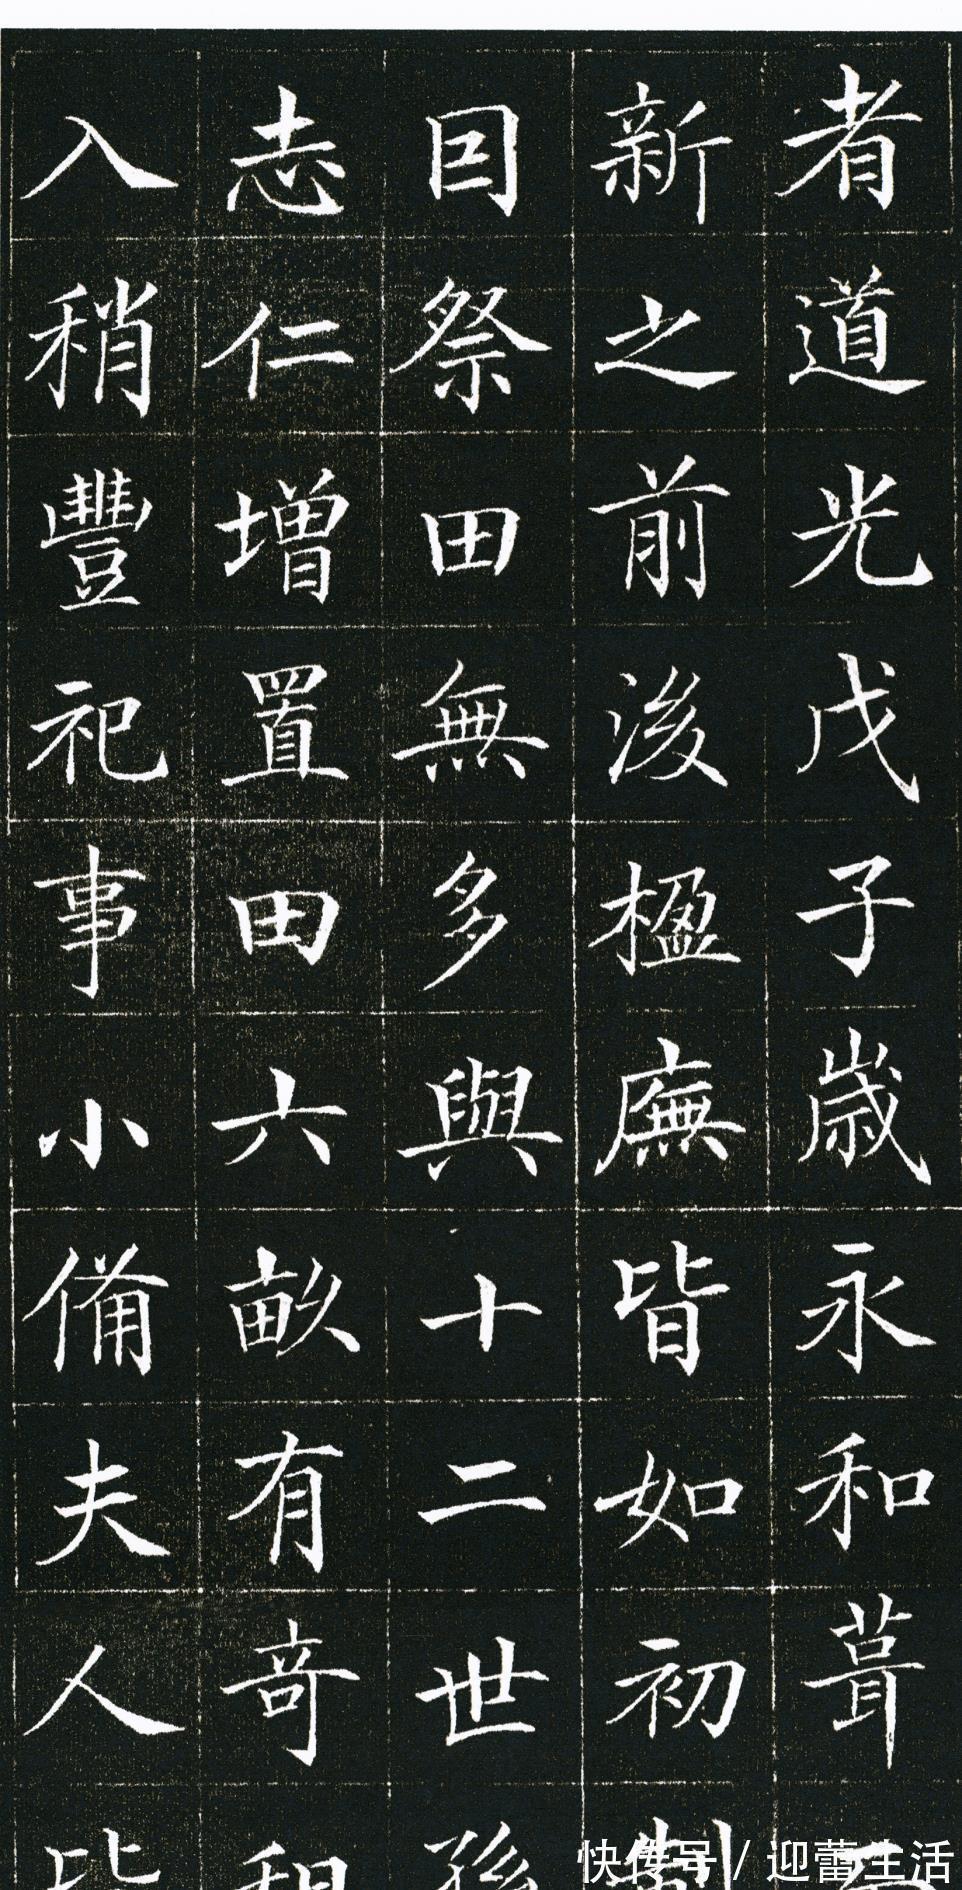 者道光戊子歲永和葺
新之前後楹廡皆如初
囙祭田無多與十二世孫
志仁增置田六畝有奇租
入稍豐祀事小備夫人
快传号 / 迎蕾生活